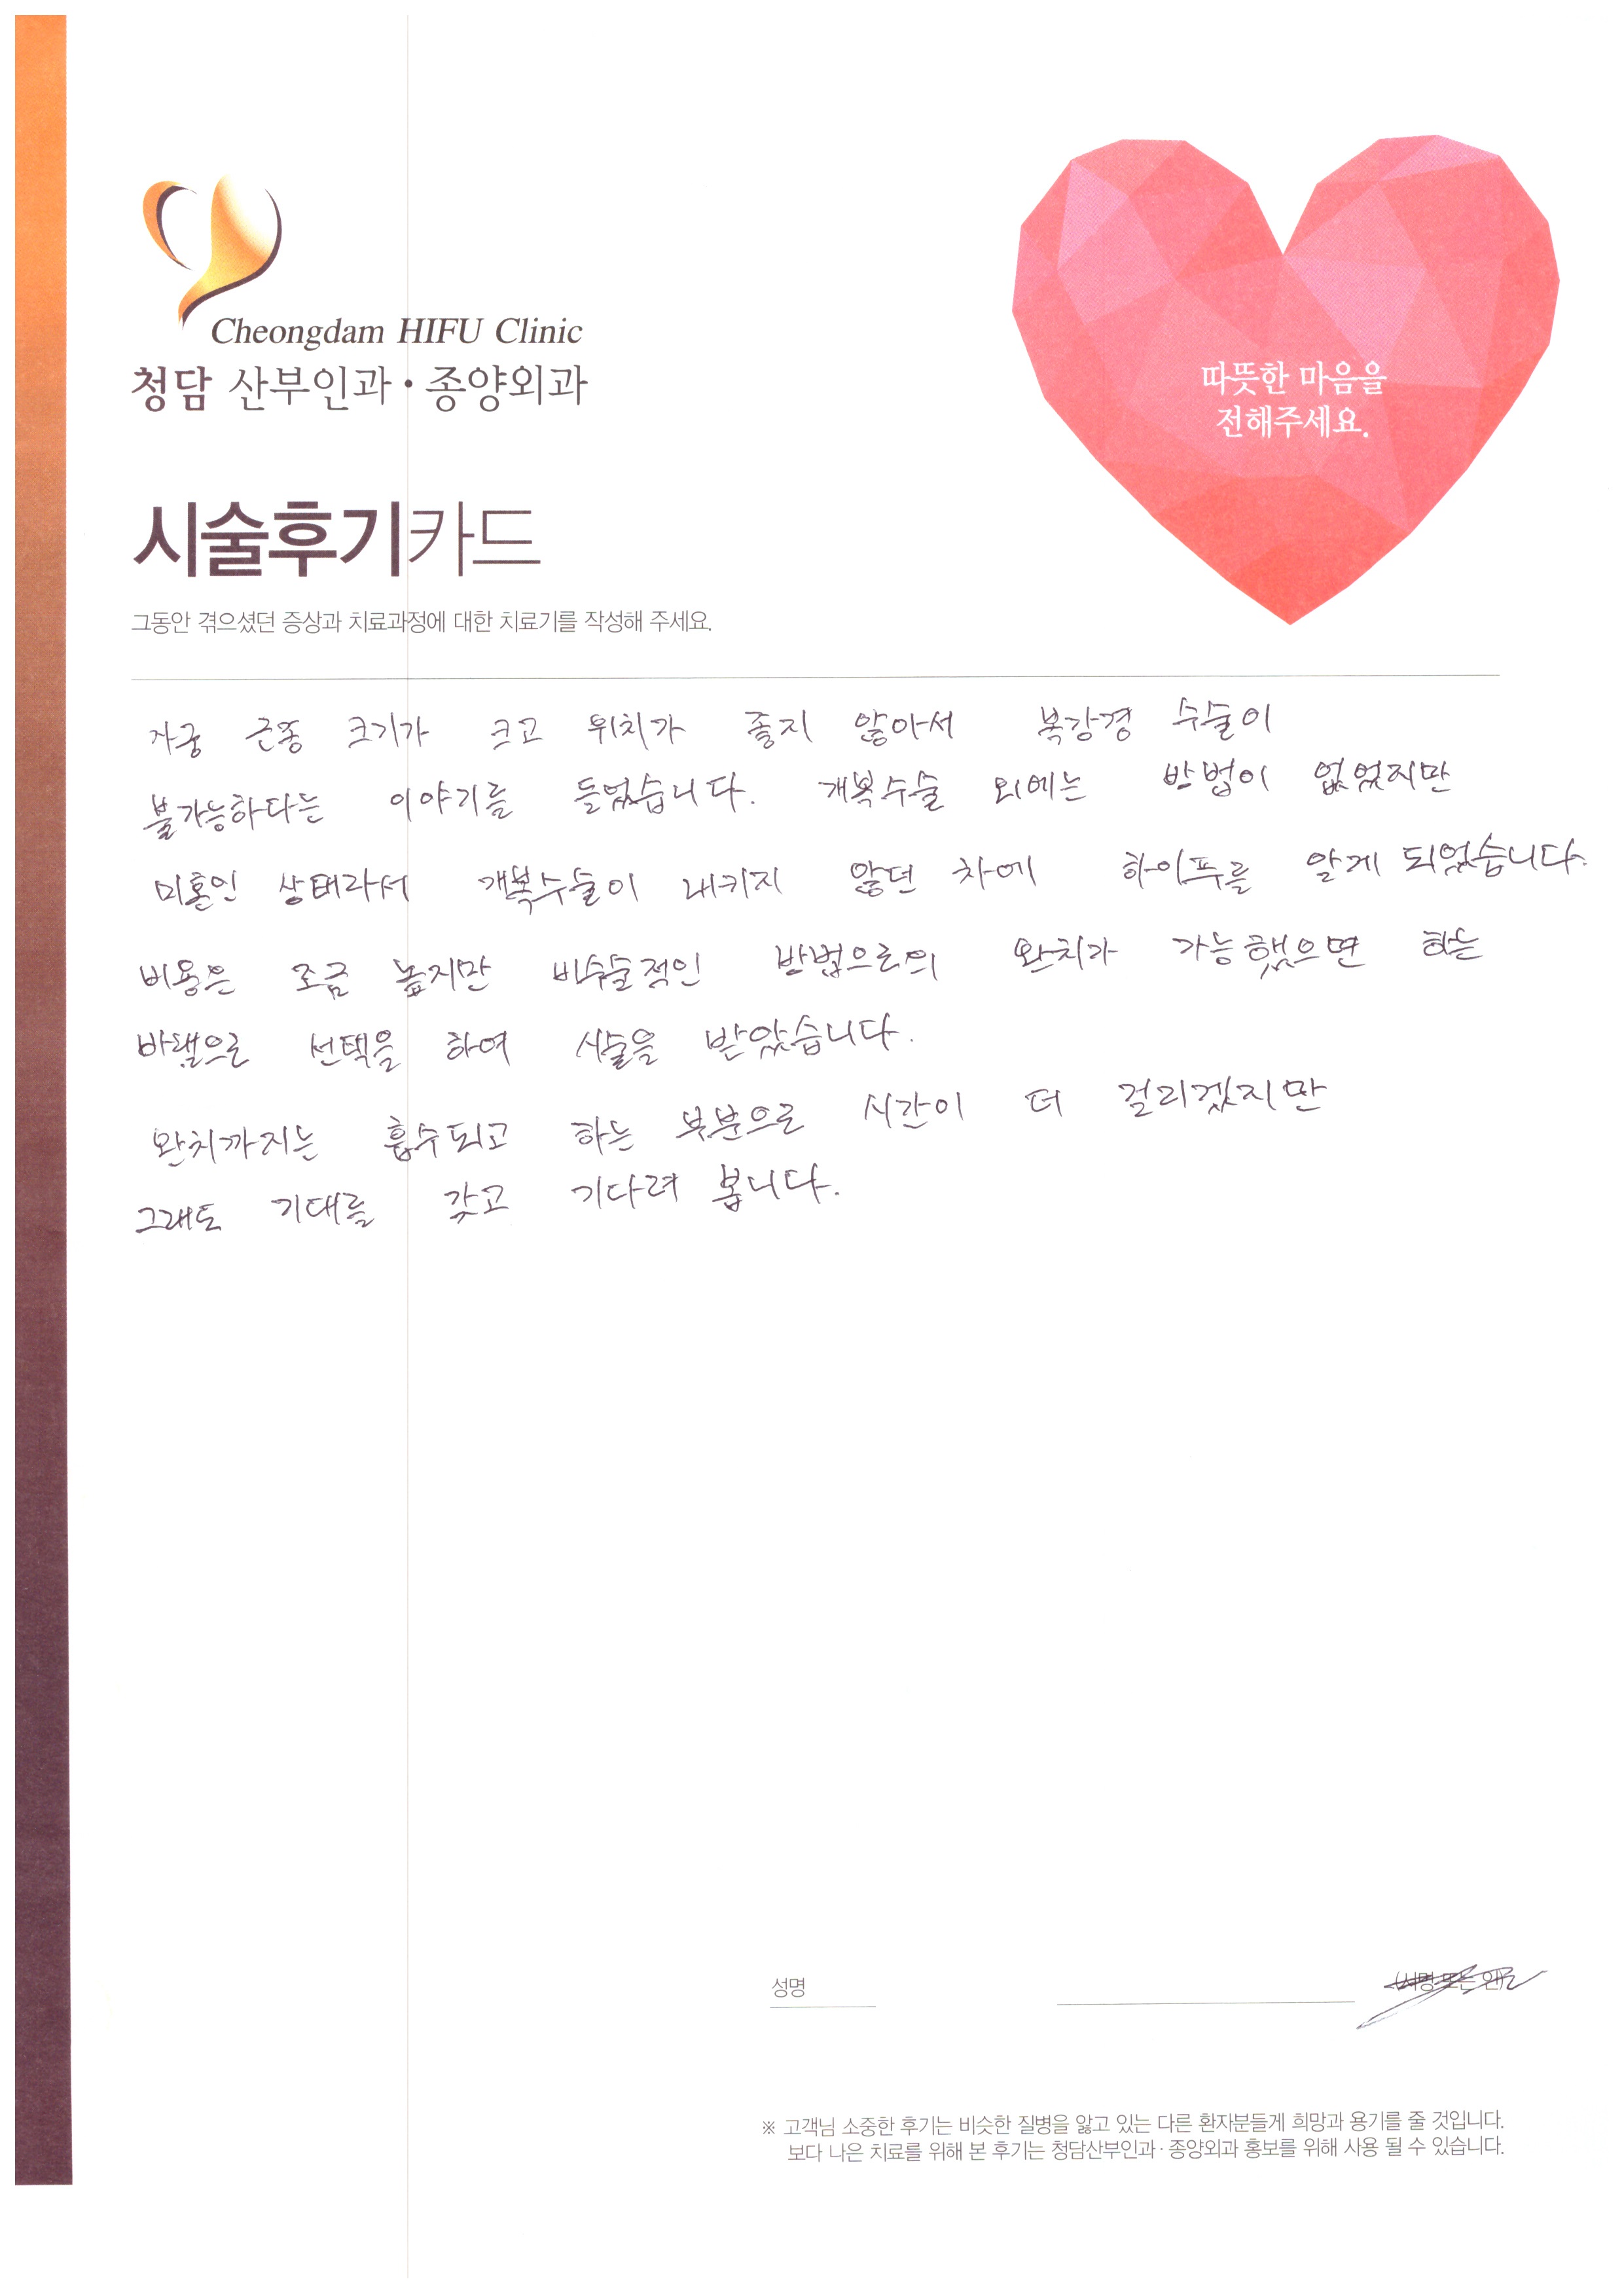 Cheongdam HIFU Clinic
청담 산부인과 · 종양외과
따뜻한 마음을
전해주세요.
시술후기카드
그동안 겪으셨던 증상과 치료과정에 대한 치료기를 작성해 주세요.
자궁 근종 크기가 크고 위치가 좋지 않아서 복강경 수술이
불가능하다는 이야기를 들었습니다. 개복수술 외에는 방법이 없었지만
미혼인 상태라서 개복수술이 내키지 않던 차에 하이푸를 알게 되었습니다.
비용은 조금 높지만 비수술적인 방법으로의 완치가 가능했으면 하는
바램으로 선택을 하여 시술을 받았습니다.
완치까지는 흡수되고 하는 부분으로 시간이 더 걸리겠지만
그래도 기대를 갖고 기다려 봅니다.
성명
(서명 또는 인)
※ 고객님 소중한 후기는 비슷한 질병을 앓고 있는 다른 환자분들게 희망과 용기를 줄 것입니다.
보다 나은 치료를 위해 본 후기는 청담산부인과 · 종양외과 홍보를 위해 사용 될 수 있습니다.